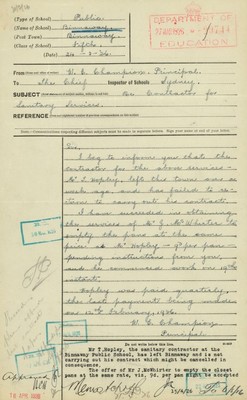 (Type of School) Public
(Name of School) Binnaway
(Post Town) Binnaway
(Class of School) Fifth
(Date) 24-2-36
DEPARTMENT OF
EDUCATION
From W. E. Champion, Principal.
To The Chief Inspector of Schools Sydney.
SUBJECT Contractor for
Sanitary Services.
REFERENCE
Sir,
I beg to inform you that the
contractor for the above services -
Mr T. Hopley, left this town
week ago, and has failed to
to carry out his contract.
I have succeeded in obtaining
the services of Mr J. McWhirter to
empty the pans at the same
price as Mr Hopley - 9d per pan -
pending instructions from you,
and he commenced work on 19th
instant.
Hopley was paid quarterly,
the last payment being made
on 12th February, 1936.
W. E. Champion
Principal.
Mr T. Hopley, the sanitary contractor at the
Binnaway Public School, has left Binnaway and is not
carrying out his contract which might be cancelled in
consequence.
The offer of Mr J. McWhirter to empty the closet
pans at the same rate, viz. 9d. per pan might be accepted
Approved